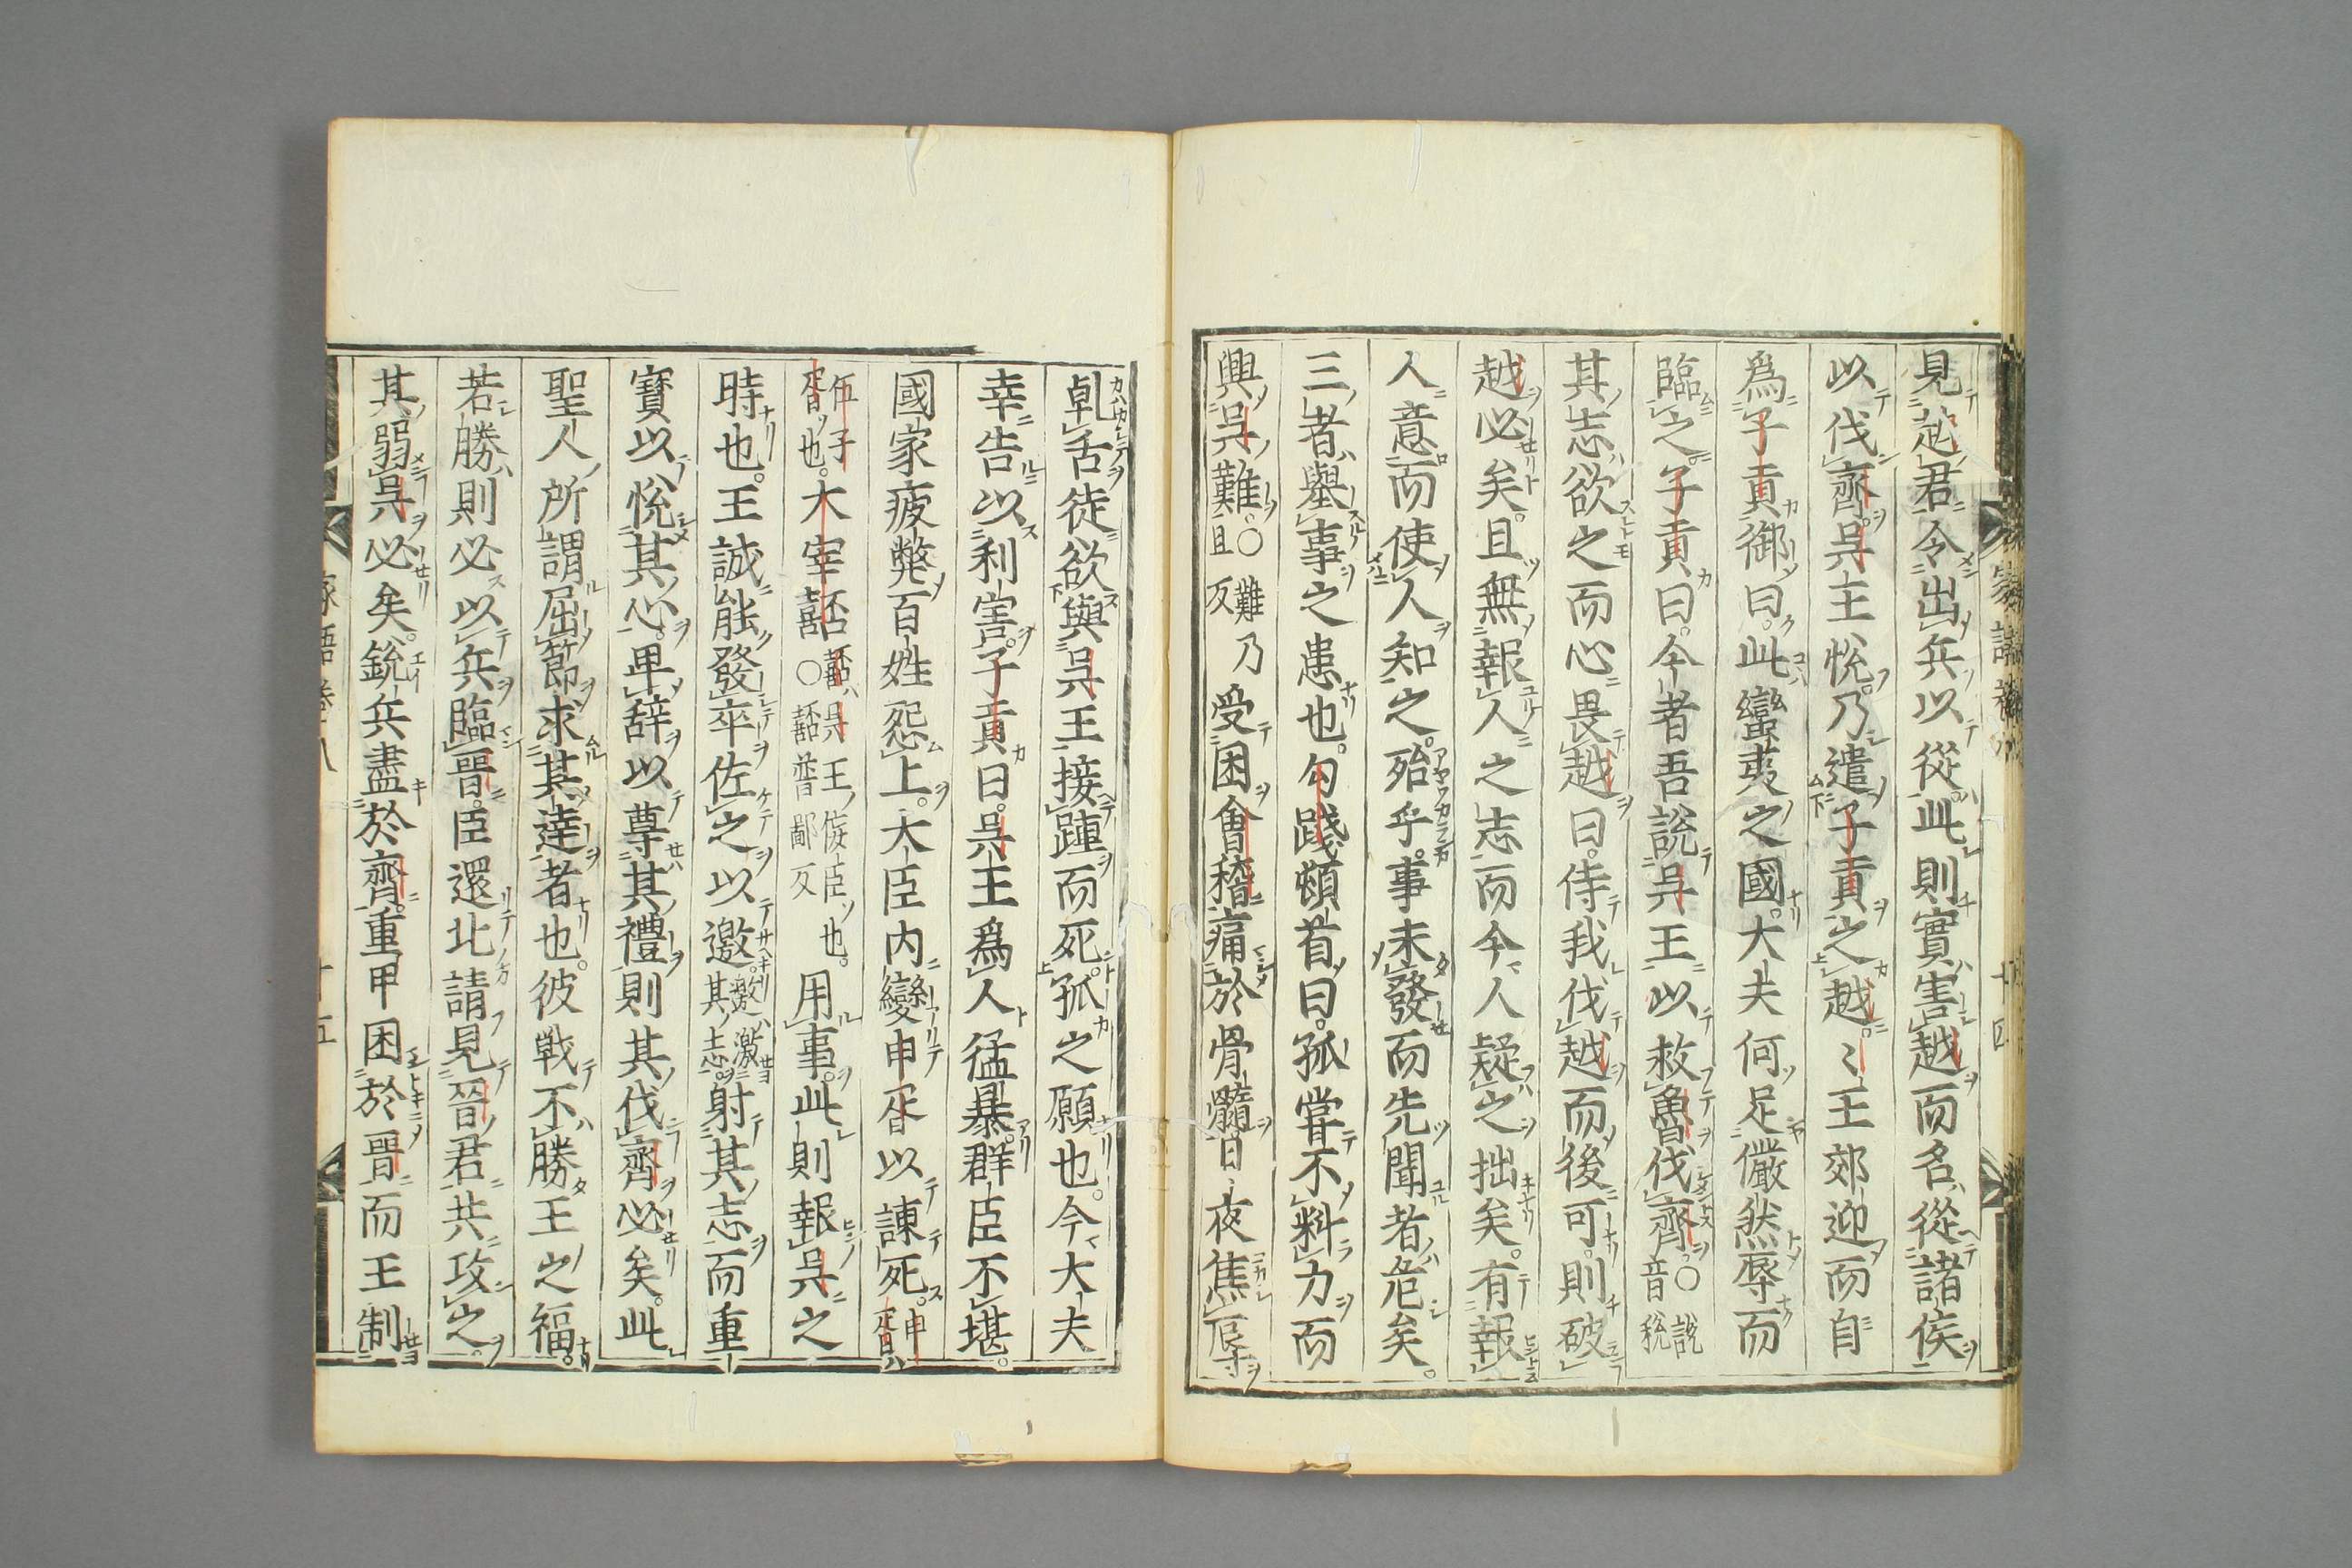 見越君令出兵以從此則實害越而名從諸侯
以伐齊吳王悅乃遣子貢之越越王郊迎而自
爲子貢御曰此蠻夷之國大夫何足儼然辱而
臨之子貢曰今者吾說吳王以救魯伐齊○說音稅
其志欲之而心畏越曰待我伐越而後可則破
越必矣且無報人之志而令人疑之拙矣有報
人意而使人知之殆乎事未發而先聞者危矣
三者舉事之患也勾踐頓首曰孤嘗不料力而
興吳難○難乃且反受困會稽痛於骨髓日夜焦脣
乾舌徒欲與吳王接踵而死孤之願也今大夫
幸告以利害子貢曰吳王爲人猛暴群臣不堪
國家疲弊百姓怨上大臣內變申胥以諫死申胥
伍子胥也大宰嚭嚭吳王佞臣也○嚭普鄙反用事此則報吳之
時也王誠能發卒佐之以邀邀激其志射其志而重
寶以悅其心卑辭以尊其禮則其伐齊必矣此
聖人所謂屈節求其達者也彼戰不勝王之福
若勝則必以兵臨晉臣還北請見晉君共攻之
其弱吳必矣銳兵盡於齊重甲困於晉而王制
家語卷八
十五